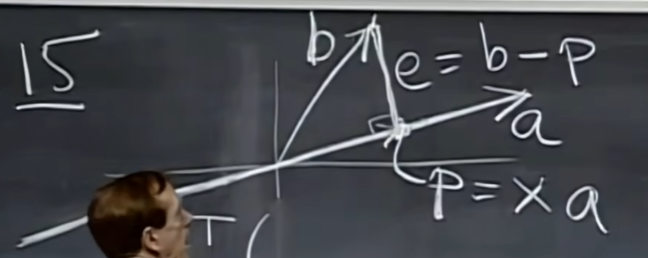 15
b
e = b - p
a
p = x a
T (